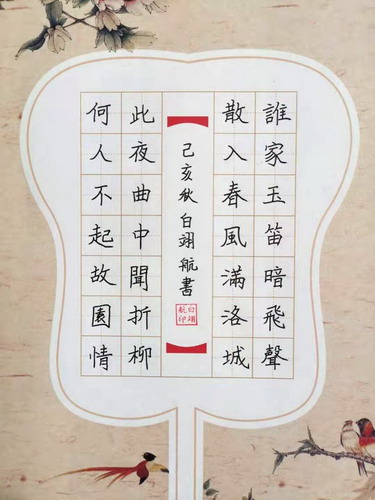 誰家玉笛暗飛聲
散入春風滿洛城
此夜曲中聞折柳
何人不起故園情
己亥秋白翊航書
白翊航印